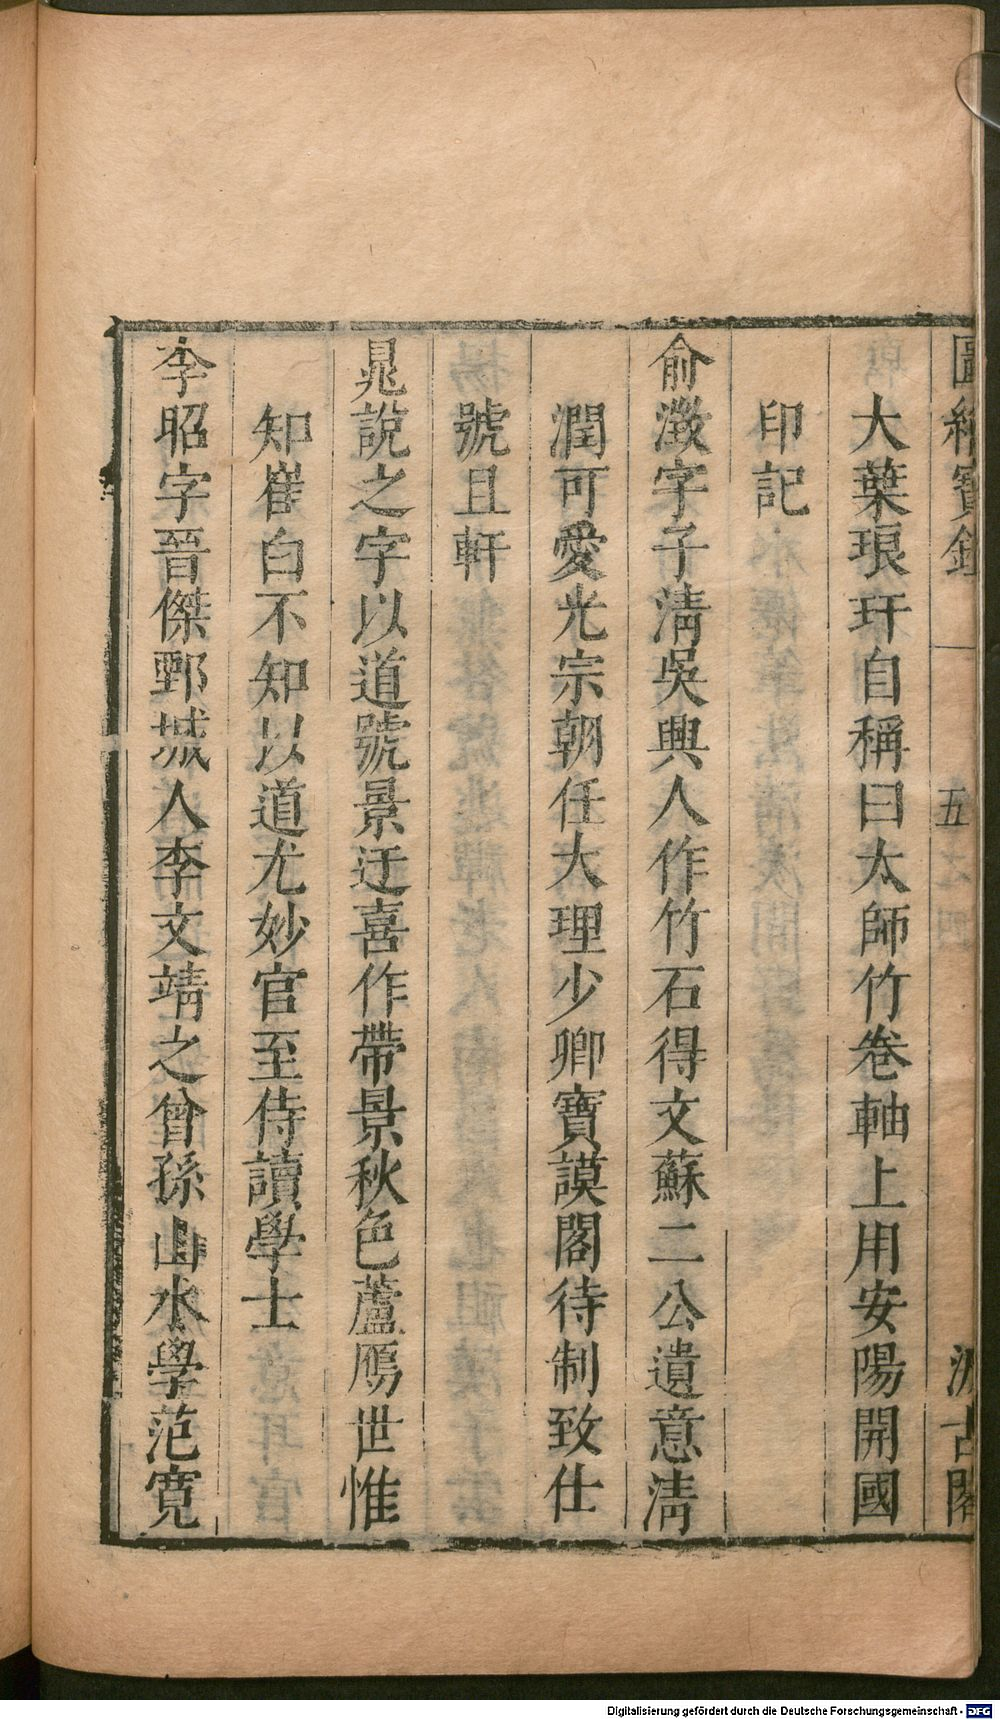 圖繪寶鑑
五
汲古閣
大葉琅玕自稱曰太師竹卷軸上用安陽開國
印記
俞澂字子淸吳興人作竹石得文蘇二公遺意淸
潤可愛光宗朝任大理少卿寶謨閣待制致仕
號且軒
晁說之字以道號景迂喜作帶景秋色蘆鴈世惟
知崔白不知以道尤妙官至侍讀學士
李昭字晉傑鄄城人李文靖之曾孫山水學范寬
Digitalisierung gefördert durch die Deutsche Forschungsgemeinschaft - DFG